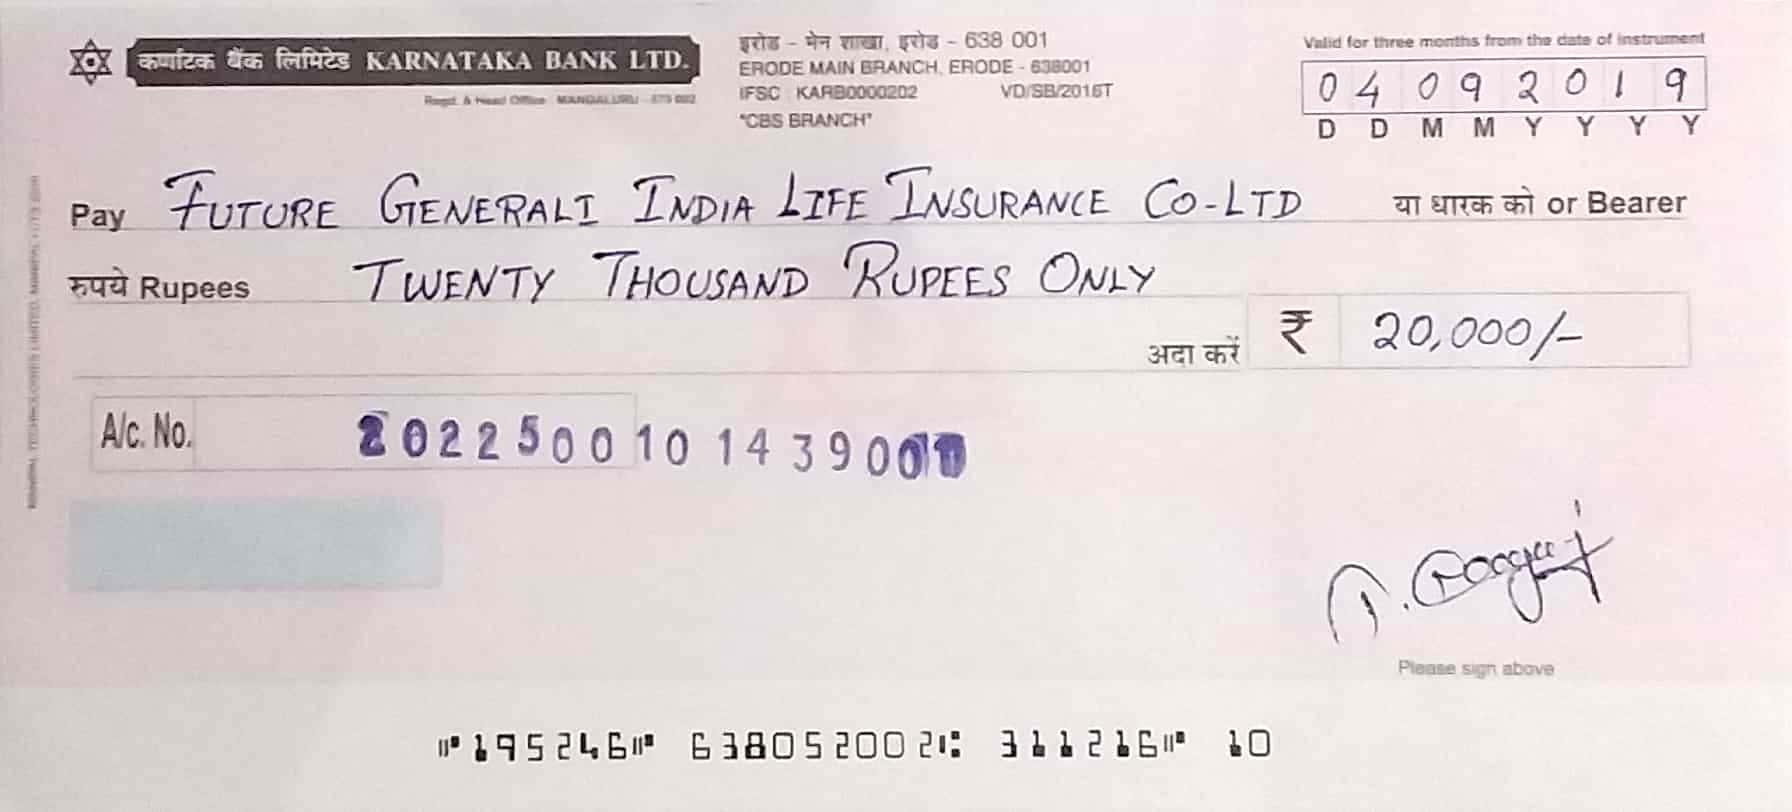 कर्णाटक बैंक लिमिटेड KARNATAKA BANK LTD.
Regd. & Head Office : MANGALURU - 575 002
इरोड - मेन शाखा, इरोड - 638 001
ERODE MAIN BRANCH, ERODE - 638001
IFSC : KARB0000202 VD/SB/2016T
"CBS BRANCH"
Valid for three months from the date of instrument
0 4 0 9 2 0 1 9
D D M M Y Y Y Y
Pay FUTURE GENERALI INDIA LIFE INSURANCE CO-LTD या धारक को or Bearer
रुपये Rupees TWENTY THOUSAND RUPEES ONLY
अदा करें ₹ 20,000/-
A/c. No. 202250010143900
Please sign above
⑈195246⑈ 638052002⑆ 311216⑈ 10